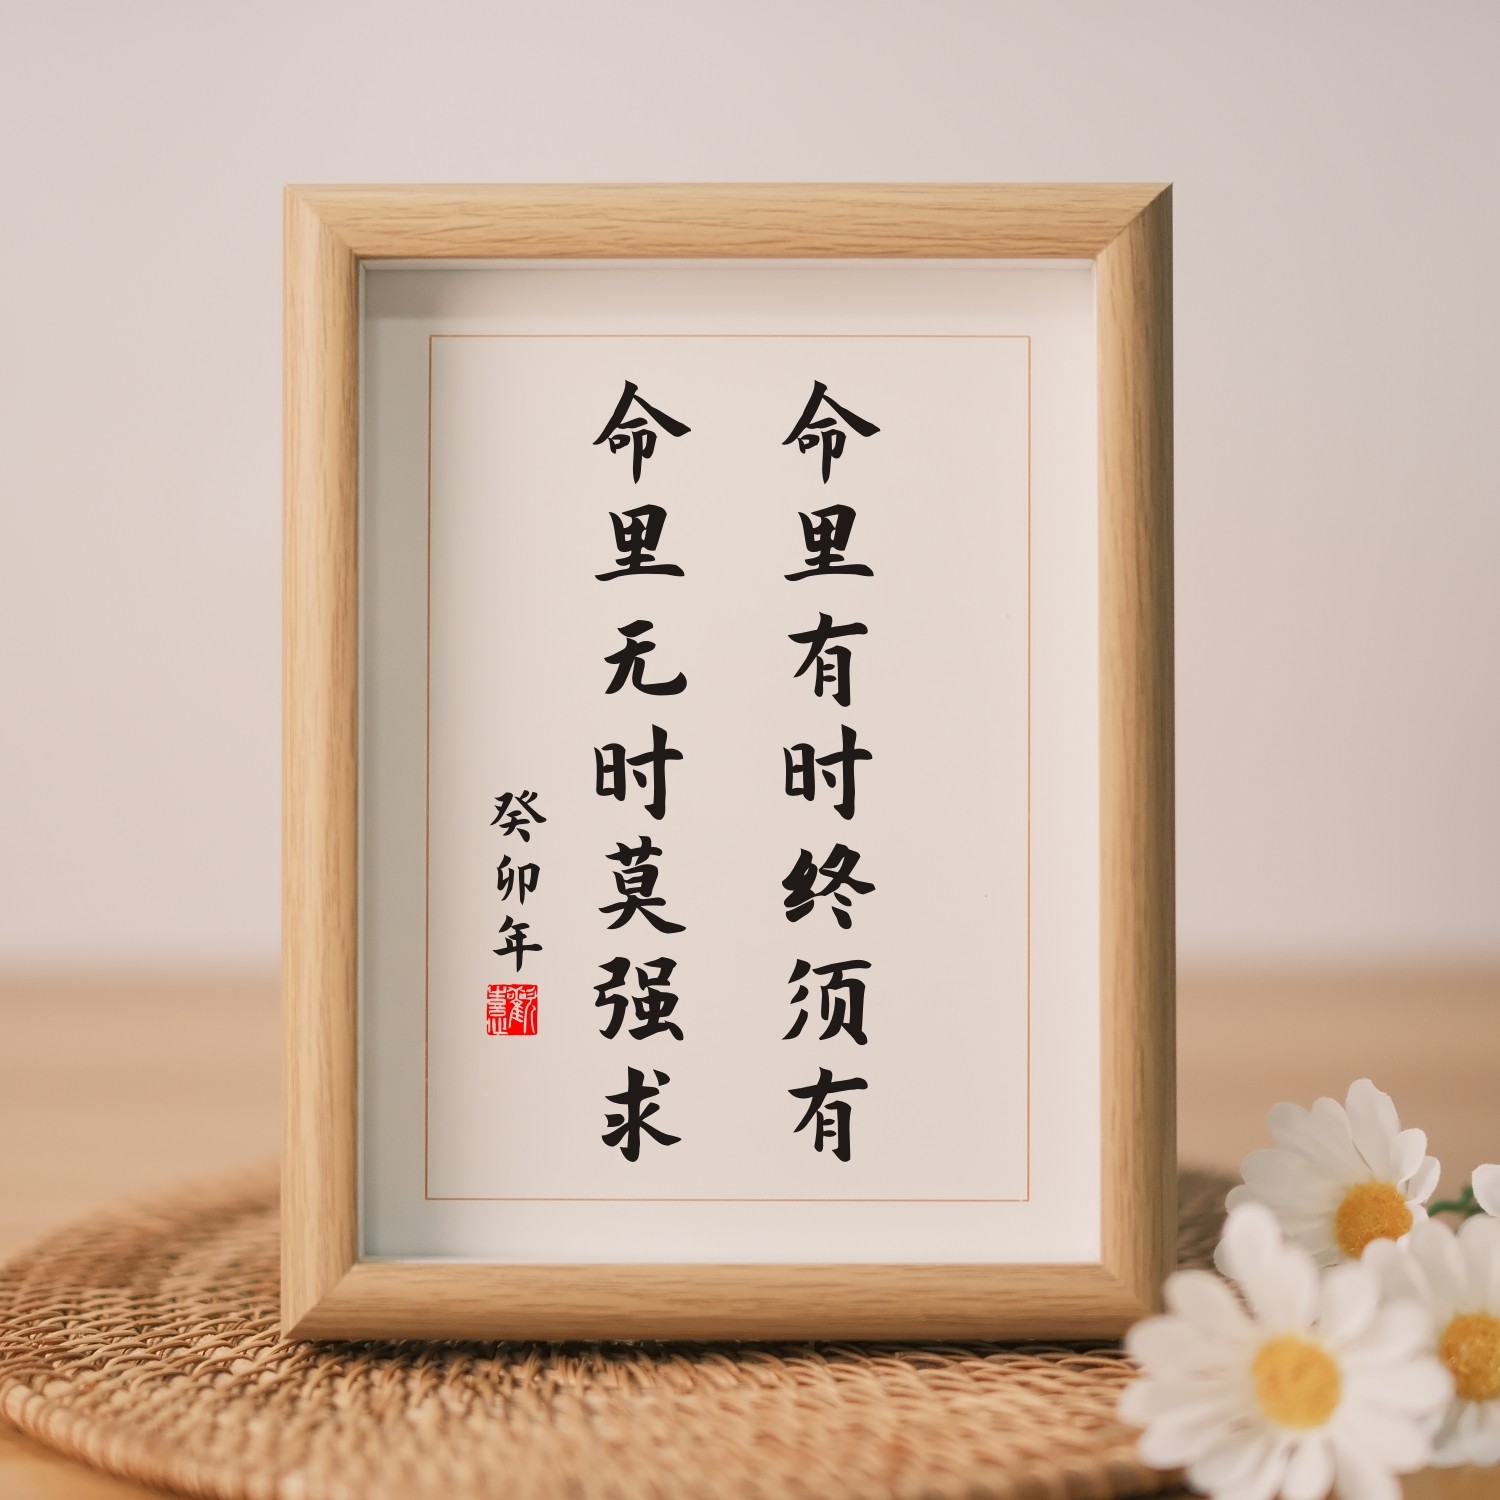 命里有时终须有
命里无时莫强求
癸卯年